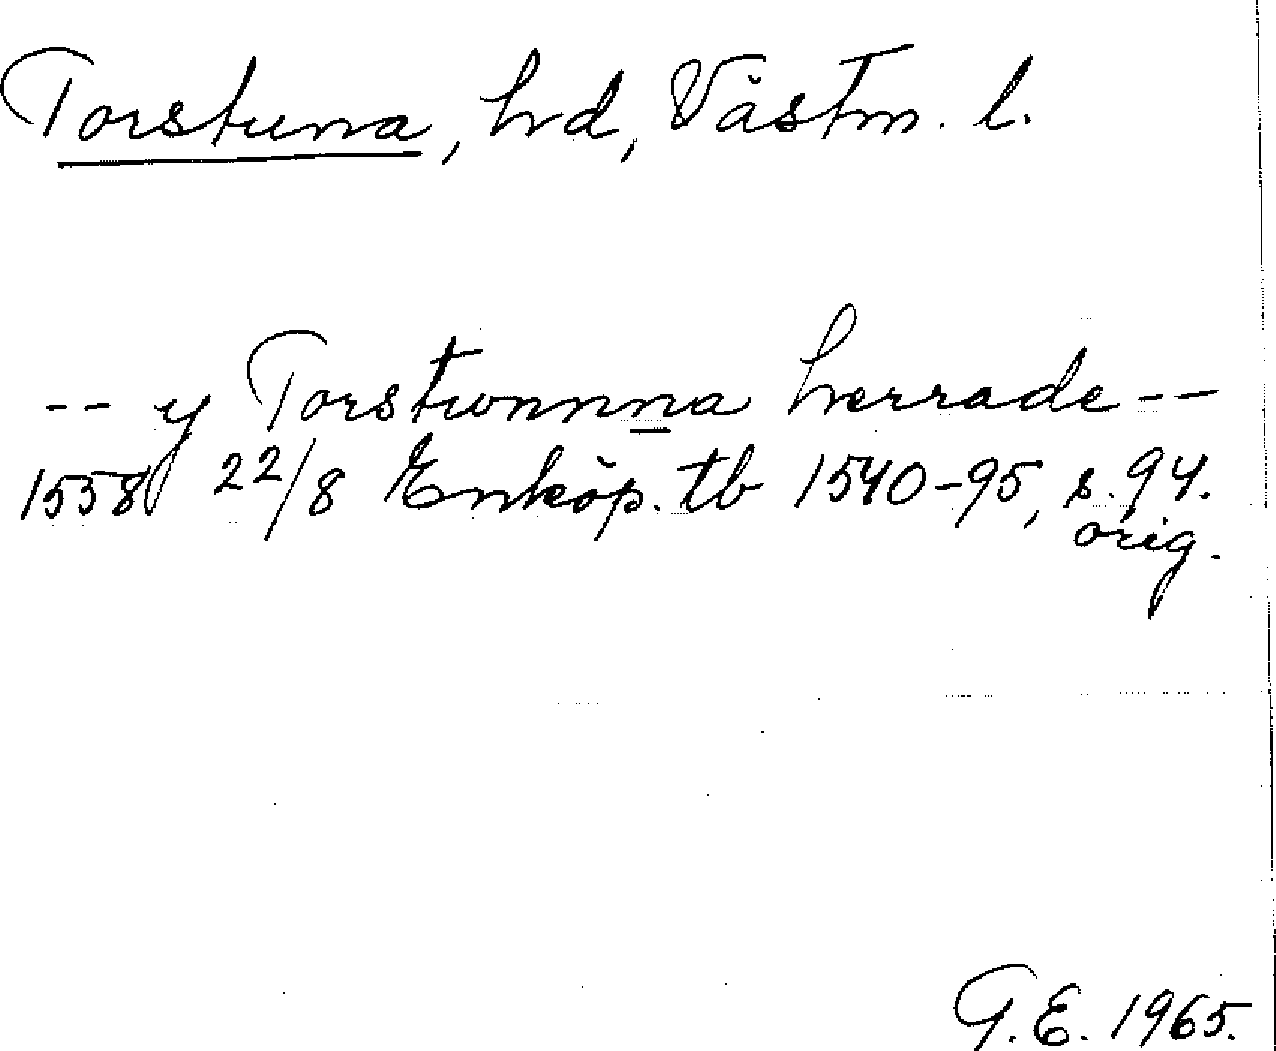 Torstuna, hd, Västm. l.
-- y Torstwnnna herrade --
1558 22/8 Enköp. tb 1540-95, s. 94.
orig.
G.E. 1965.